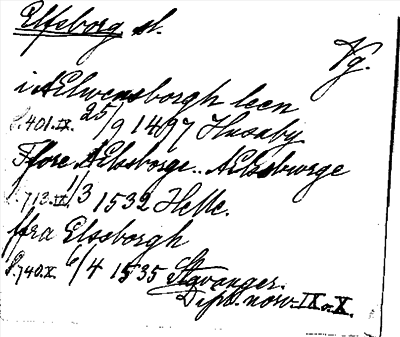 Elfsborg sl.
Vg.
i Ælwensborgh leen
S. 401. IX. 25/9 1497 Husaby
Ffore Ælssborge.. Ælssburge
S. 713. IX. 1/3 1532 Helle.
ffra Elssborgh
S. 740. X. 6/4 1535 Stavanger.
Dipl. norv. IX o. X.